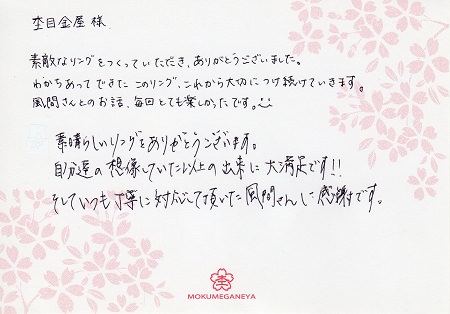 杢目金屋 様
素敵なリングをつくっていただき、ありがとうございました。
わかちあってできた このリング、これから大切につけ続けていきます。
風間さんとのお話、毎回とても楽しかったです。
素晴らしいリングをありがとうございます。
自分達の想像していた以上の出来に大満足です!!
そしていつも丁寧に対応して頂いた風間さんに感謝です。
杢
MOKUMEGANEYA